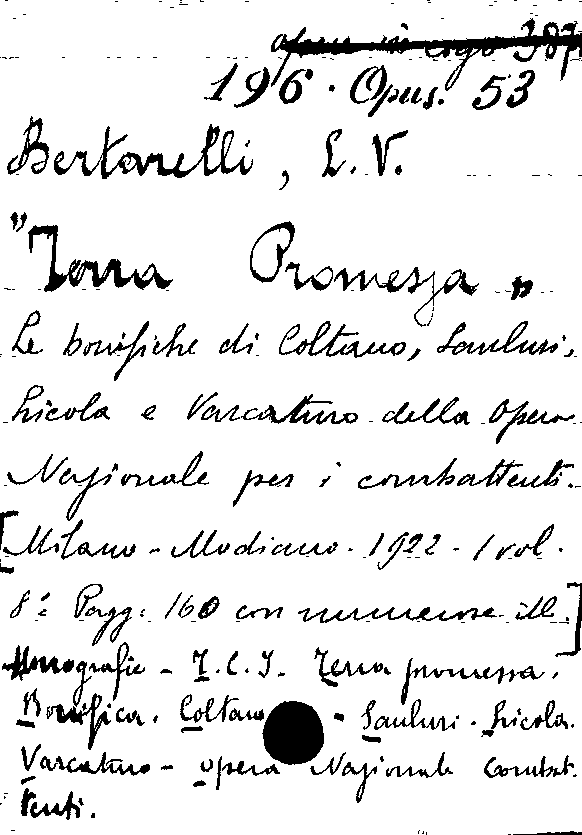 196 · Opus. 53
Bertarelli, L. V.
"Terra Promessa"
Le bonifiche di Coltano, Sanluri,
Licola e Varcaturo della Opera
Nazionale per i combattenti.
[Milano - Modiano - 1922 - 1 vol.
8º Pagg: 160 con numerose ill.]
Monografie - T.C.I. Terra promessa.
Bonifica. Coltano - Sanluri. Licola.
Varcaturo - opera Nazionale Combat-
tenti.